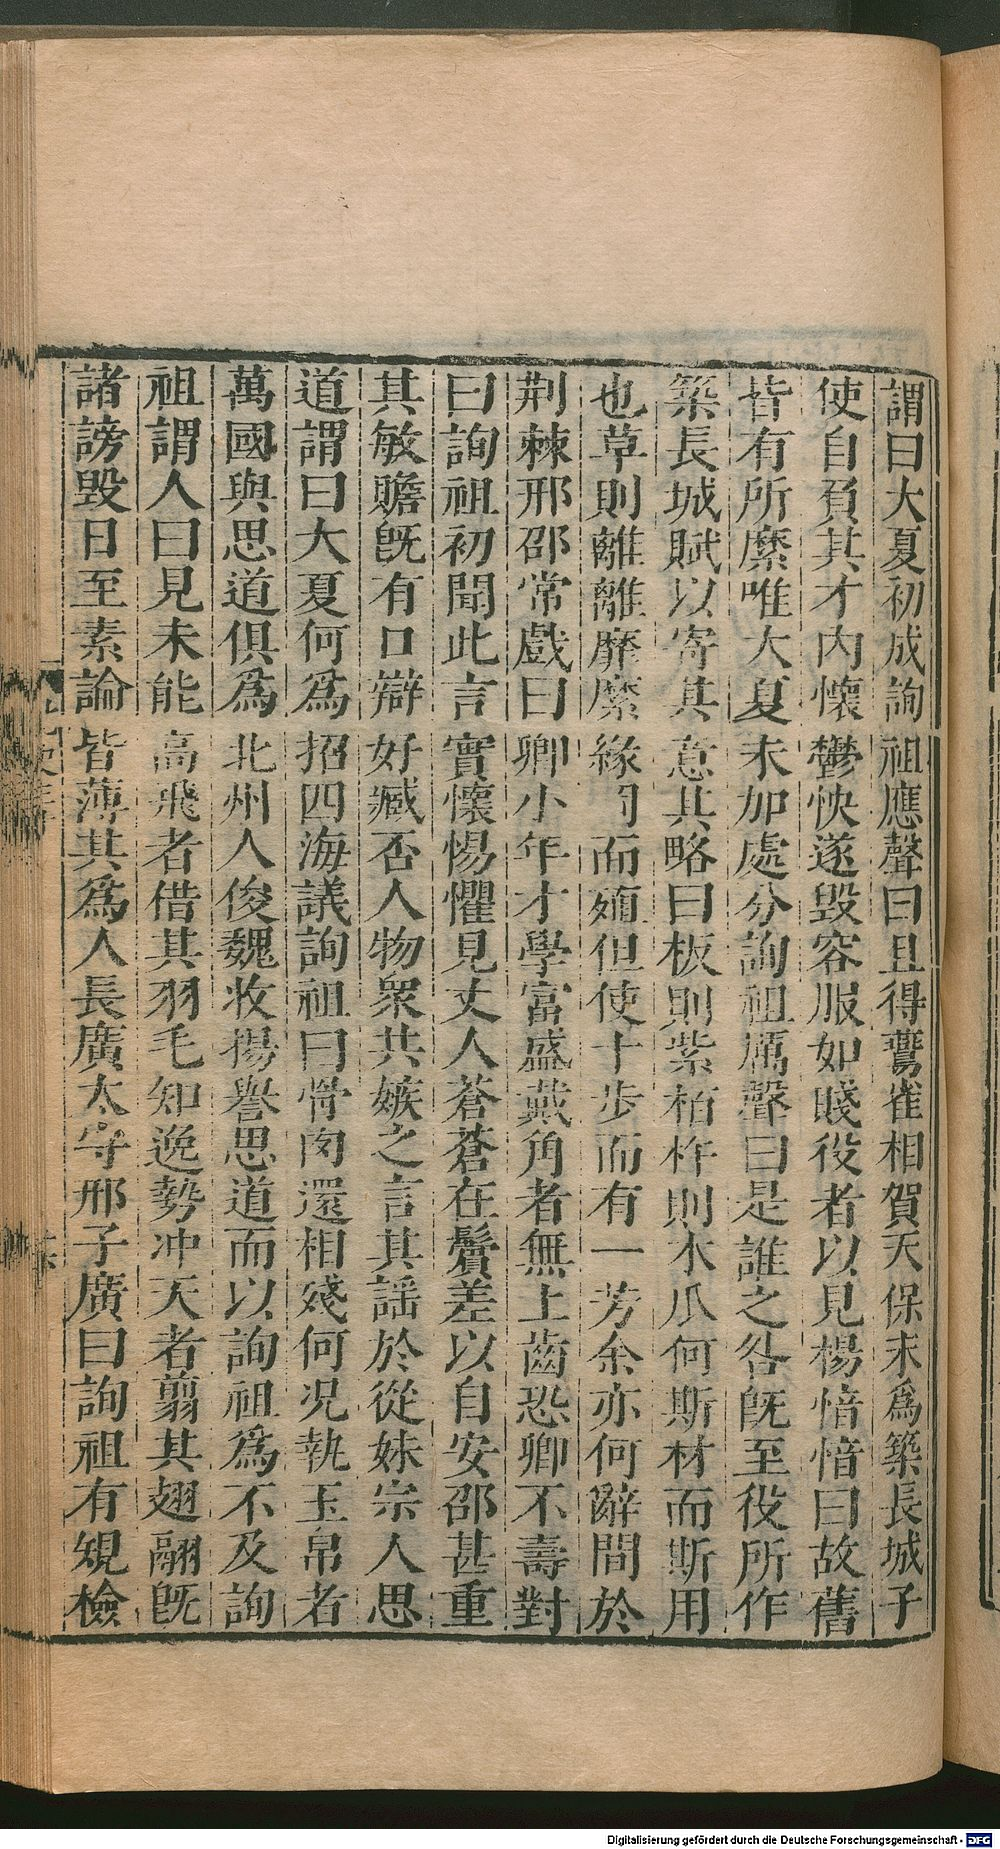 謂曰大夏初成詢祖應聲曰且得鷰雀相賀天保末爲築長城子
使自負其才内懷鬱怏遂毀容服如賤役者以見楊愔愔曰故舊
皆有所縻唯大夏未加處分詢祖厲聲曰是誰之咎旣至役所作
築長城賦以寄其意其略曰板則紫栢杵則木瓜何斯材而斯用
也草則離離靡靡緣岡而殖但使十步而有一芳余亦何辭間於
荆棘邢邵常戲曰卿小年才學富盛戴角者無上齒恐卿不壽對
曰詢祖初聞此言實懷惕懼見丈人蒼蒼在鬢差以自安邵甚重
其敏贍旣有口辯好臧否人物衆共嫉之言其謡於從妹宗人思
道謂曰大夏何爲招四海議詢祖曰骨肉還相殘何况執玉帛者
萬國與思道俱爲北州人俊魏收揚譽思道而以詢祖爲不及詢
祖謂人曰見未能高飛者借其羽毛知逸勢冲天者翦其翅翮旣
諸謗毀日至素論皆薄其爲人長廣太守邢子廣曰詢祖有規檢
Digitalisierung gefördert durch die Deutsche Forschungsgemeinschaft - DFG